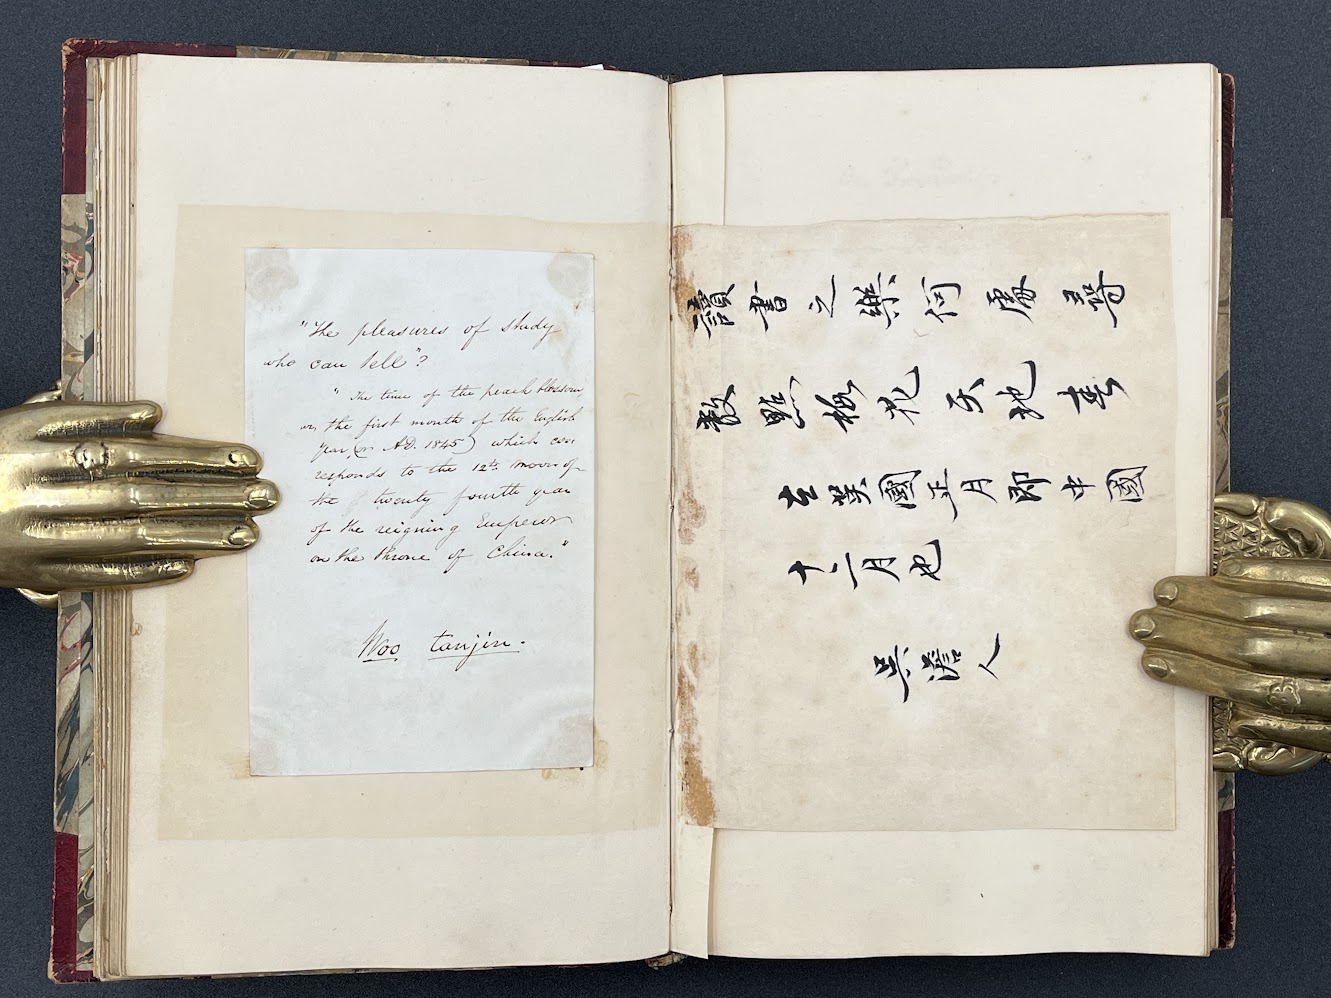 "The pleasures of study
who can tell"?
"The time of the peach blossom
on the first month of the English
Year (or AD. 1845) which cor
responds to the 12th moon of
the twenty fourth year
of the reigning Emperor
on the throne of China."
Woo tanjin.
讀書之樂何處尋
數點梅花天地春
在英國正月即中國
十二月也
吳澹人